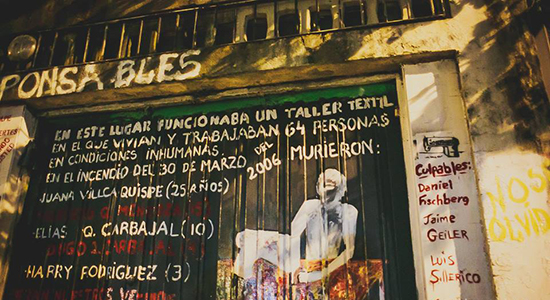 PONSABLES
EN ESTE LUGAR FUNCIONABA UN TALLER TEXTIL
EN EL QUE VIVIAN Y TRABAJABAN 64 PERSONAS
EN CONDICIONES INHUMANAS.
EN EL INCENDIO DEL 30 DE MARZO DEL
2006 MURIERON:
JUANA VILLCA QUISPE (25 AÑOS)
-ELÍAS Q. CARBAJAL (10)
CARBAJAL
-HARRY RODRÍGUEZ (3)
Culpables:
Daniel
Fischberg
Jaime
GEILER
LUIS
SILLERICO
NOS
OLVID